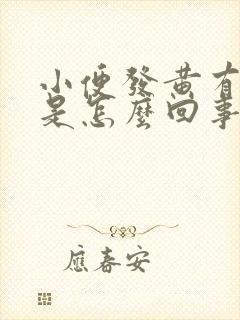 小便發黃有
是怎麼回事
應春安